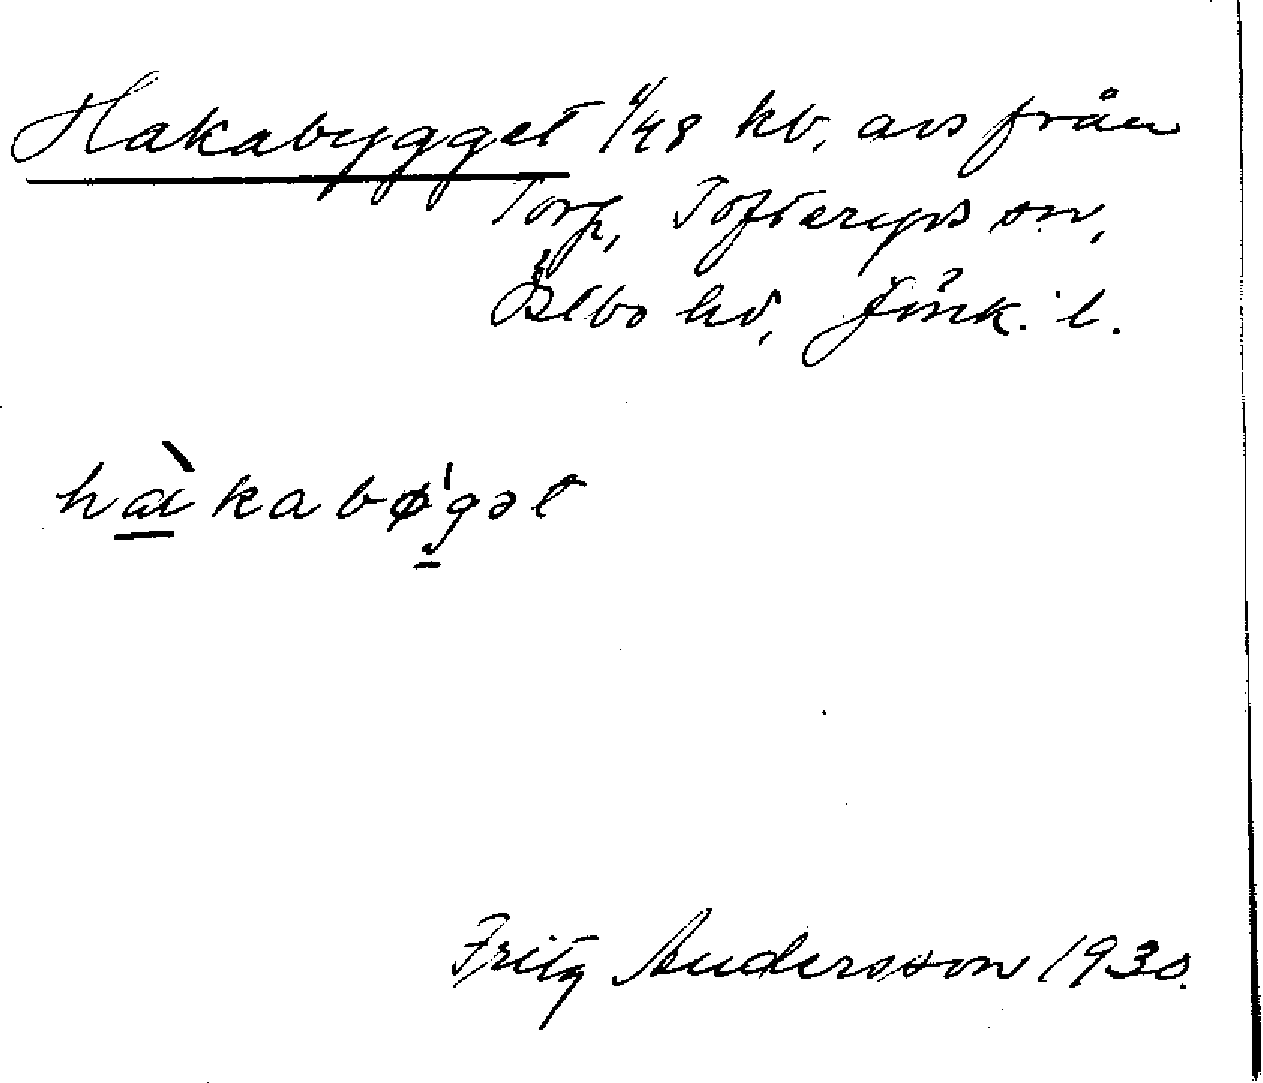 Hakabygget 1/48 kb. avs från
Torp, Tofteryds sn,
Östbo hd, Jönk. l.
hàkabø'gət
Fritz Andersson 1930.